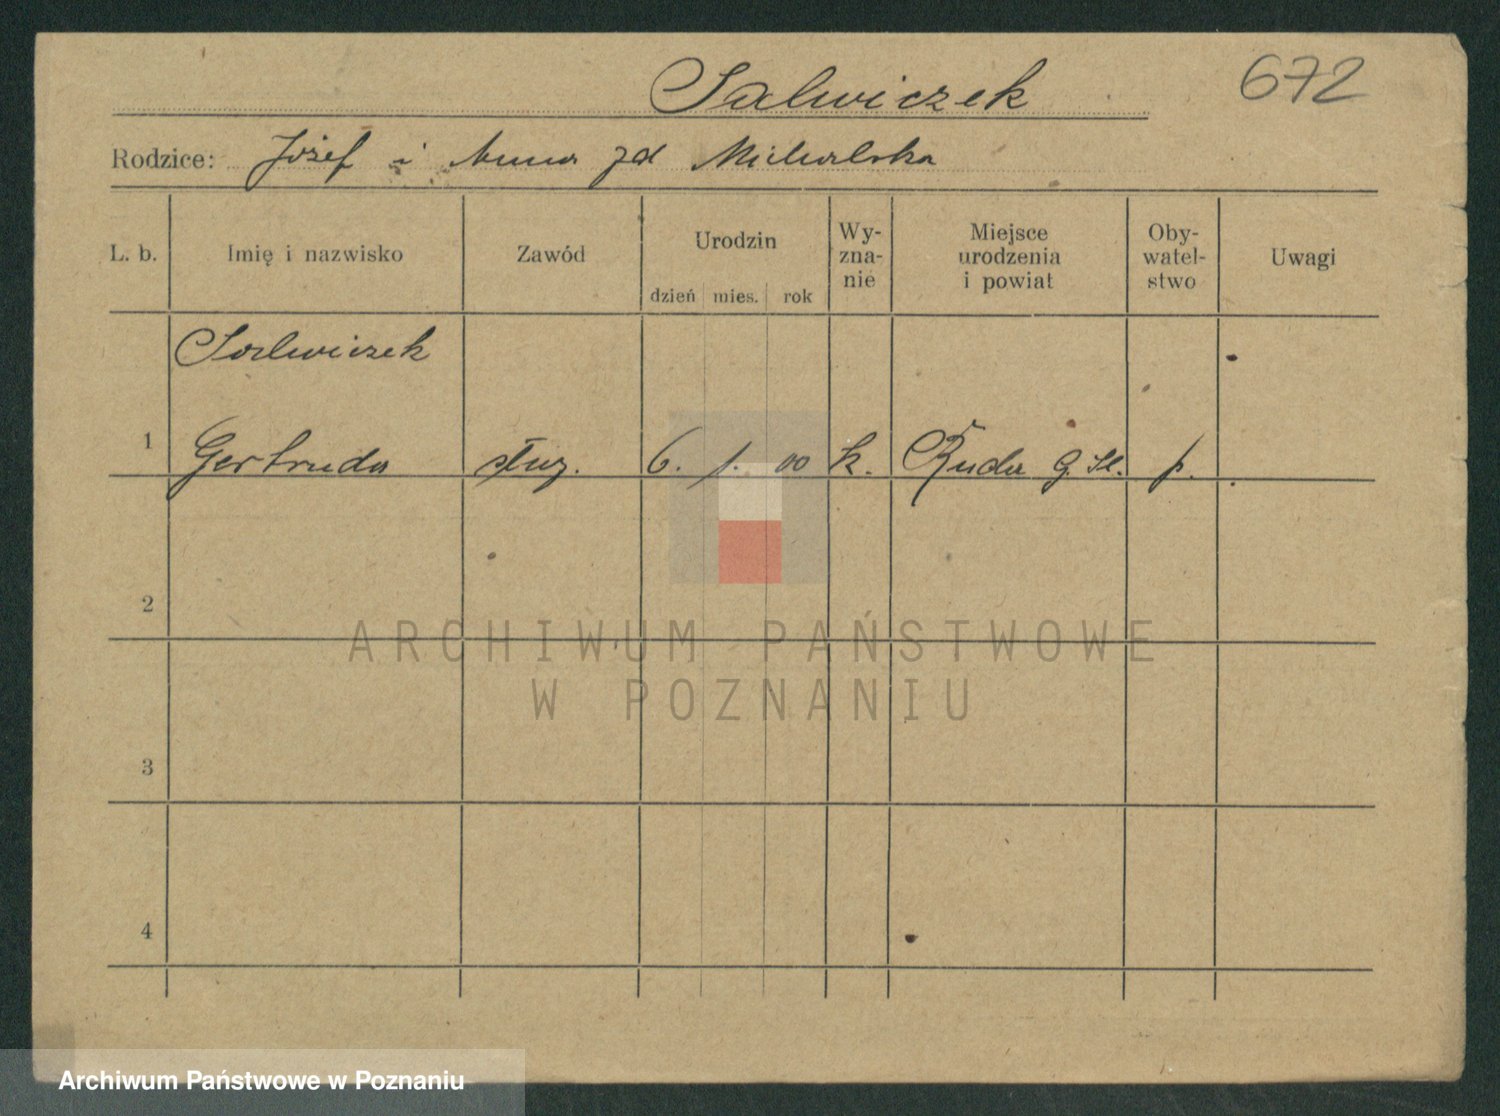 Salwiczek
672
Rodzice: Józef i Anna zd Michalska
L. b. Imię i nazwisko Zawód Urodzin dzień mies. rok Wy-zna-nie Miejsce urodzenia i powiat Oby-watel-stwo Uwagi
Salwiczek
1 Gertruda służ. 6. 1. 00 k. Ruda G. Śl. p.
2
3
4
ARCHIWUM PAŃSTWOWE
W POZNANIU
Archiwum Państwowe w Poznaniu